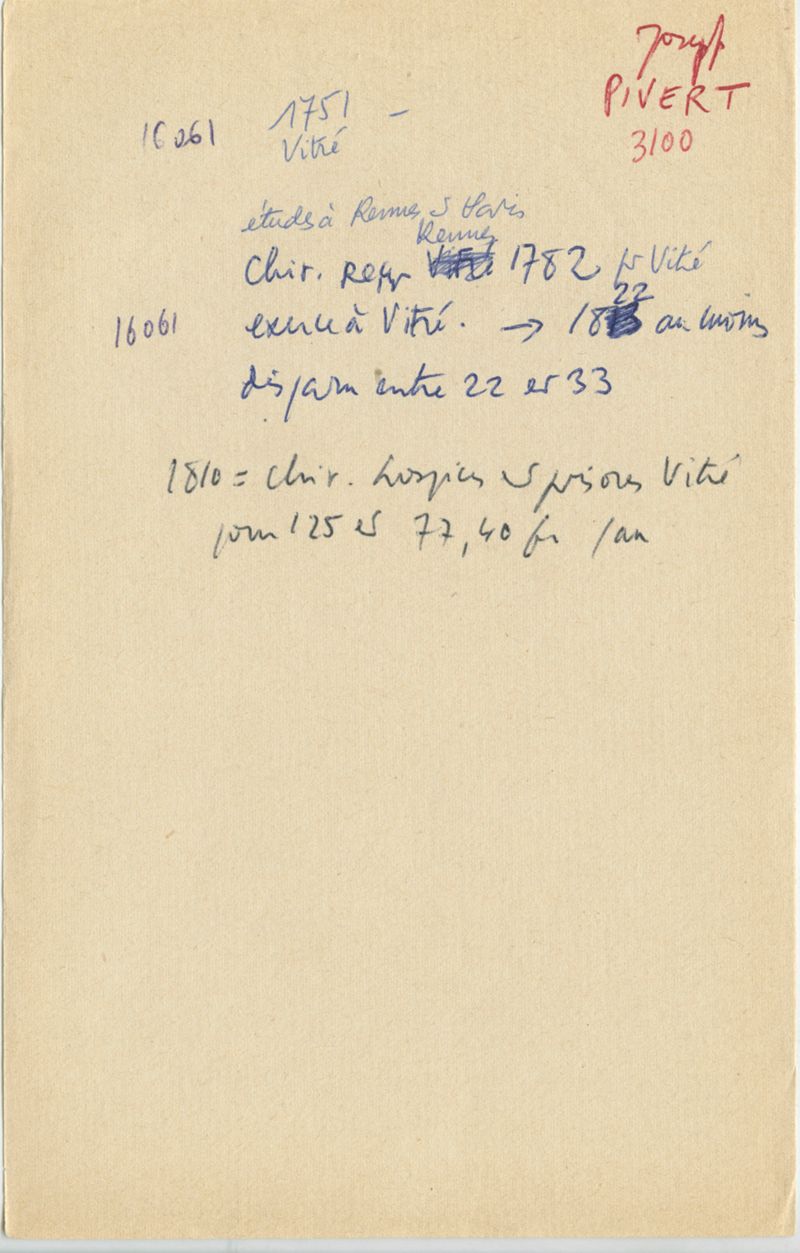 Joseph
PIVERT
3100
16061 1751 -
Vitré
études à Rennes et Paris
Rennes
Chir. reçu 1782 pr Vitré
22
16061 exerce à Vitré. → 18 au moins
disparu entre 22 et 33
1810 = chir. hospices et prisons Vitré
pour 125 et 77,40 fr /an